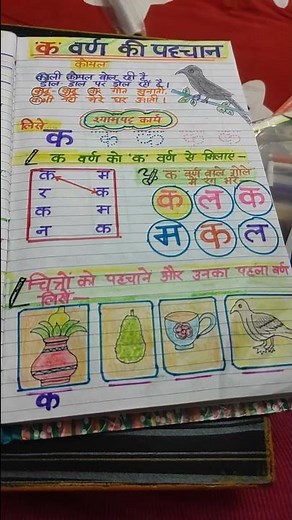 क वर्ण की पहचान
कोयल
काली कोयल बोल रही है
डाल डाल पर डोल रही है।
कुहू कुहू का गीत सुनाती
कभी नहीं मेरे घर आती।
श्यामपट्ट कार्य
लिखें
क क क क क
क वर्ण को 'क' वर्ण से मिलाए -
क म
र क
क म
न क
क वर्ण वाले गोले
में रंग भरें
क ल क
म क ल
चित्रों को पहचाने और उनका पहला वर्ण
लिखें -
क